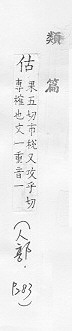 類篇
估
果五切市稅又攻乎切
專㩁也文一重音一
(人部·
B83)